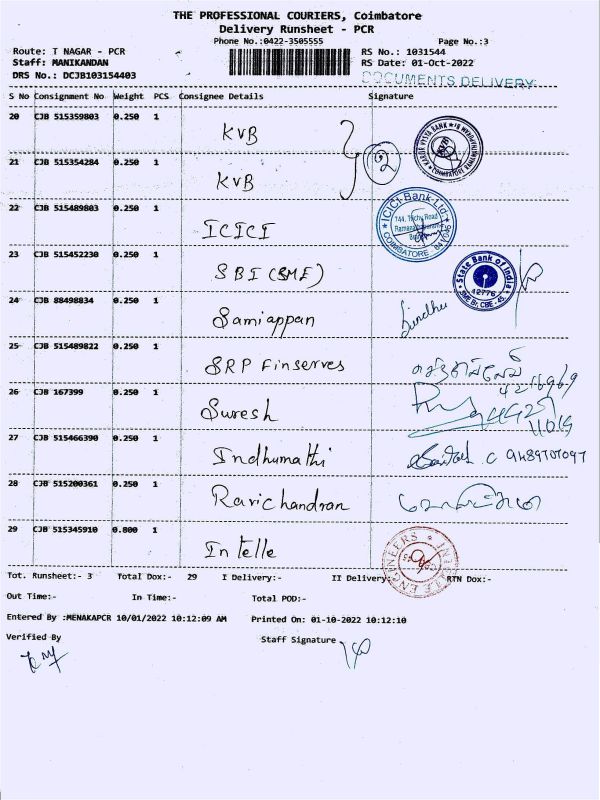 THE PROFESSIONAL COURIERS, Coimbatore
Delivery Runsheet - PCR
Phone No.:0422-3505555 Page No.:3
Route: T NAGAR - PCR RS No.: 1031544
Staff: MANIKANDAN RS Date: 01-Oct-2022
DRS No.: DCJB103154403 DOCUMENTS DELIVERY
S No Consignment No Weight PCS Consignee Details Signature
20 CJB 515359803 0.250 1 KVB
KARUR VYSYA BANK
2
21 CJB 515354284 0.250 1 KVB
22 CJB 515489803 0.250 1 ICICI
ICICI Bank Ltd.
144, Trichy Road
COIMBATORE
23 CJB 515452230 0.250 1 SBI (SME)
State Bank of India
12776
SME Br, CBE - 45
24 CJB 88498834 0.250 1 Samiappan Sindhu
25 CJB 515489822 0.250 1 SRP Finserves
26 CJB 167399 0.250 1 Suresh
27 CJB 515466390 0.250 1 Indhumathi
28 CJB 515200361 0.250 1 Ravichandran
29 CJB 515345910 0.800 1 Intelle
ENGINEERS
Tot. Runsheet:- 3 Total Dox:- 29 I Delivery:- II Delivery:- RTN Dox:-
Out Time:- In Time:- Total POD:-
Entered By :MENAKAPCR 10/01/2022 10:12:09 AM Printed On: 01-10-2022 10:12:10
Verified By Staff Signature